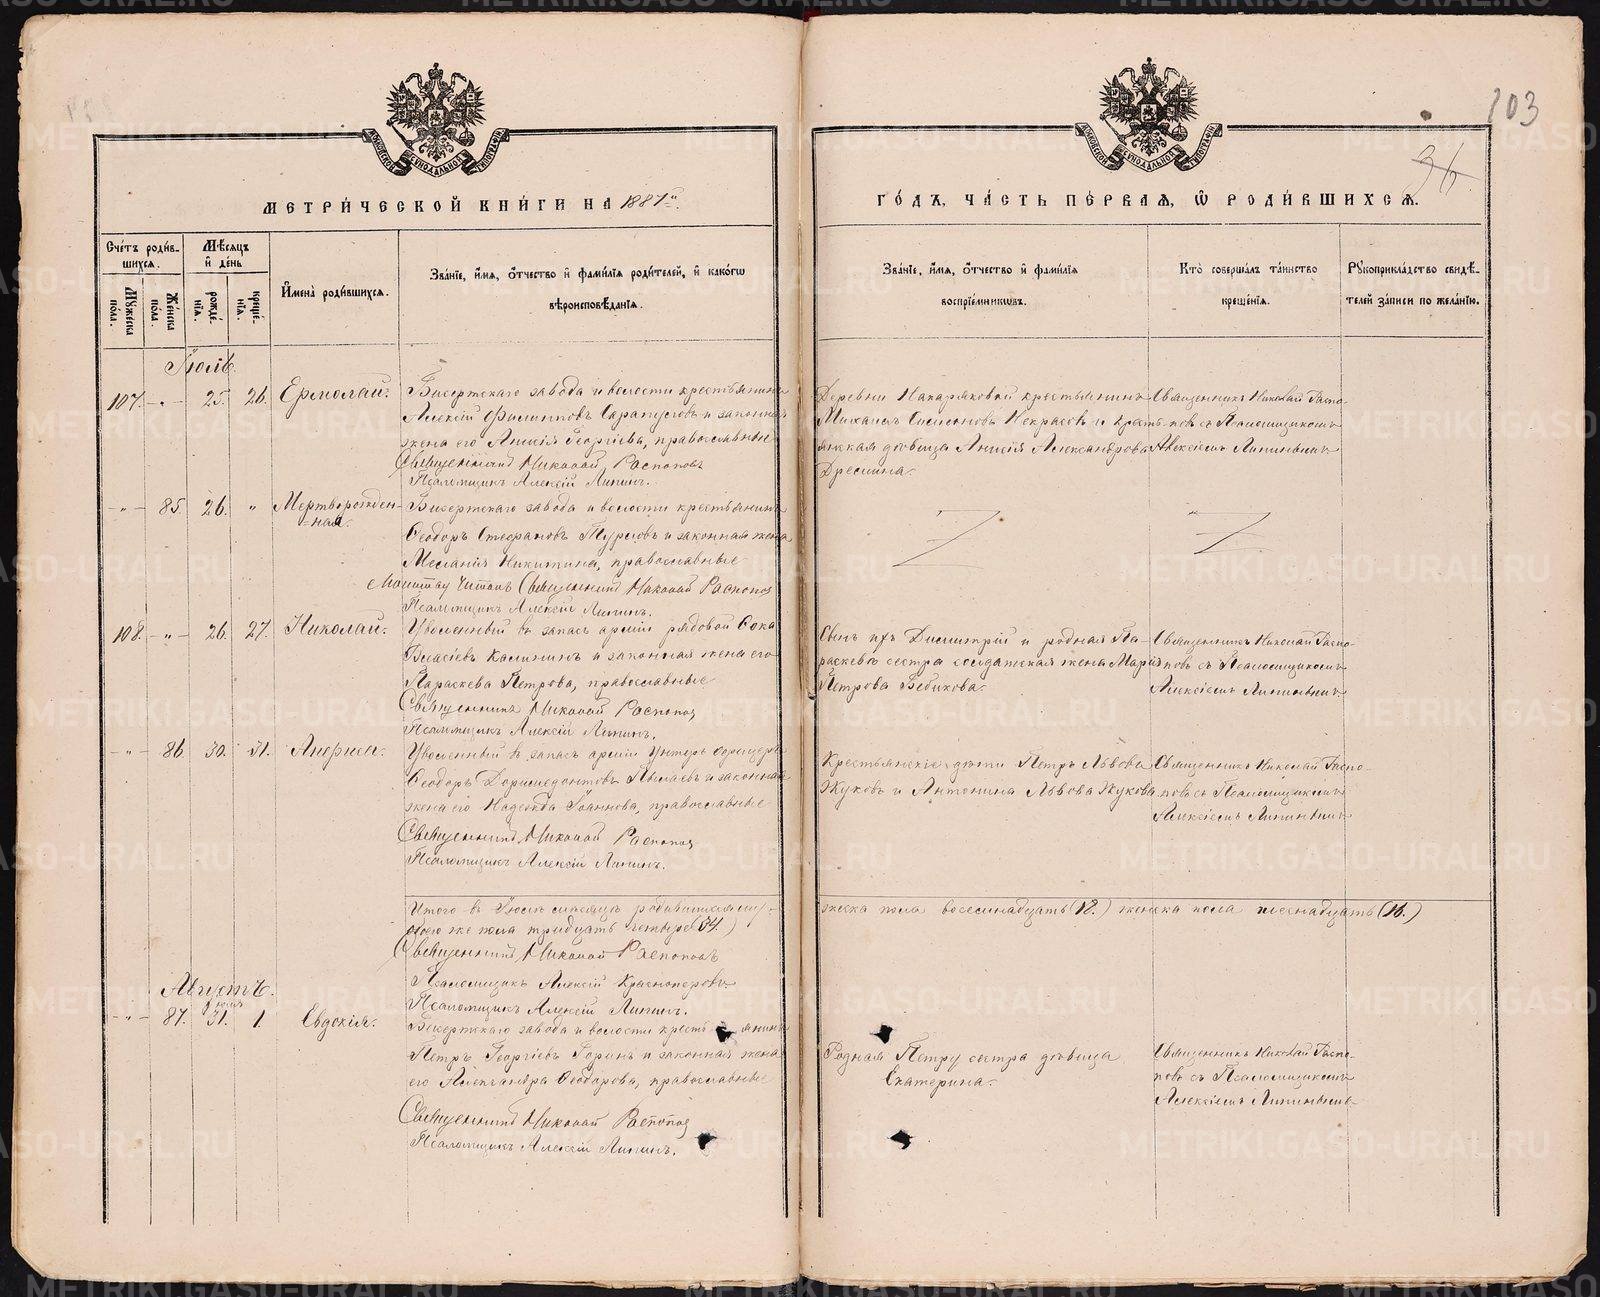 103
36
МЕТРИ́ЧЕСКОЙ КНИ́ГИ НА 1887й
ГО́ДЪ, ЧА́СТЬ ПЕ́РВАЯ, Ѡ РОДИ́ВШИХСЯ.
Сче́тъ роди́в-
шихся.
Му́жеска по́ла.
Же́нска по́ла.
Мѣ́сяцъ и де́нь
рожде́-нія.
креще́-нія.
И҆мена̀ роди́вшихся.
Зва́нїе, и҆́мя, о҆́тчество и҆ фами́лїя роди́телей, и҆ како́гѡ
вѣроисповѣ́данїя.
Зва́нїе, и҆́мя, о҆́тчество и҆ фами́лїя
воспрїе́мникѡвъ.
Кто̀ соверша́лъ та́инство
креще́нїя.
Рукоприкла́дство свидѣ́-
телей за́писи по жела́нїю.
Іюль
107. -„- 25. 26. Ермолай. Бисертскаго завода и волости крестьянинъ
Алексій Филипповъ Сарапуловъ и законная
жена его Анисія Георгіева, православные
Священникъ Николай Распоповъ
Псаломщикъ Алексій Липинъ.
Деревни Накаряковой крестьянинъ
Михаилъ Симеоновъ Некрасовъ и крестья-
янская дѣвица Анисія Александрова
Дрягина.
Священникъ Николай Распо-
повъ съ Псаломщикомъ
Алексіемъ Липинымъ
-„- 85. 26. „ Мертворожден-
=ная.
Бисертскаго завода и волости крестьянинъ
Ѳеодоръ Стефановъ Турысовъ и законная жена
Меланія Никитина, православные
Молитву читалъ Священникъ Николай Распопов
Псаломщикъ Алексій Липинъ.
108. -„- 26. 27. Николай. Уволенный въ запасъ арміи рядовой Ѳока
Власіевъ Калининъ и законная жена его
Параскева Петрова, православные
Священникъ Николай Распопов
Псаломщикъ Алексій Липинъ.
Сынъ ихъ Димитрій и родная Па-
раскевѣ сестра солдатская жена Марія
Петрова Бебикова.
Священникъ Николай Распо-
повъ съ Псаломщикомъ
Алексіемъ Липинымъ
-„- 86. 30. 31. Анфиса. Уволенный въ запасъ арміи унтеръ офицеръ
Ѳеодоръ Доримедонтовъ Пылаевъ и законная
жена его Надежда Іоаннова, православные
Священникъ Николай Распопов
Псаломщикъ Алексій Липинъ.
Крестьянскіе дѣти Петръ Львовъ
Жуковъ и Антонина Львова Жукова.
Священникъ Николай Распо-
повъ съ Псаломщикомъ
Алексіемъ Липинымъ
Итого въ Іюлѣ мѣсяцѣ родившихся му-
жеска пола восемнадцать (18.) женска пола шестнадцать (16.)
обоего же пола тридцать четыре (34.)
Священникъ Николай Распоповъ
Псаломщикъ Алексій Красноперовъ
Псаломщикъ Алексій Липинъ.
Августъ.
-„- 87. Іюля 31. 1. Евдокія. Бисертскаго завода и волости крестьянинъ
Петръ Георгіевъ Горинъ и законная жена
его Александра Ѳеодорова, православные
Священникъ Николай Распопов
Псаломщикъ Алексій Липинъ.
Родная Петру сестра дѣвица
Екатерина.
Священникъ Николай Распо-
повъ съ Псаломщикомъ
Алексіемъ Липинымъ
METRIKI.GASO-URAL.RU